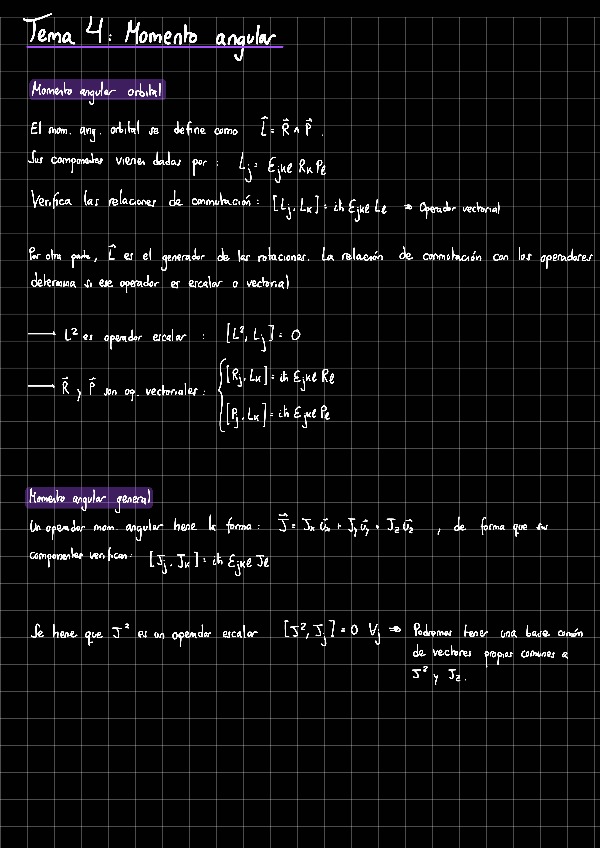 Tema 4: Momento angular
Momento angular orbital
El mom. ang. orbital se define como L⃗ = R⃗ ∧ P⃗.
Sus componentes vienen dadas por: Lⱼ = εⱼₖₗ Rₖ Pₗ
Verifica las relaciones de conmutación: [Lⱼ, Lₖ] = iħ εⱼₖₗ Lₗ ⇒ Operador vectorial
Por otra parte, L⃗ es el generador de las rotaciones. La relación de conmutación con los operadores
determina si ese operador es escalar o vectorial
→ L² es operador escalar: [L², Lⱼ] = 0
→ R⃗ y P⃗ son op. vectoriales: { [Rⱼ, Lₖ] = iħ εⱼₖₗ Rₗ
[Pⱼ, Lₖ] = iħ εⱼₖₗ Pₗ
Momento angular general
Un operador mom. angular tiene la forma: J⃗ = Jₓ u⃗ₓ + Jy u⃗y + Jz u⃗z, de forma que sus
componentes verifican: [Jⱼ, Jₖ] = iħ εⱼₖₗ Jₗ
Se tiene que J² es un operador escalar [J², Jⱼ] = 0 ∀ⱼ ⇒ Podremos tener una base común
de vectores propios comunes a
J² y Jz.